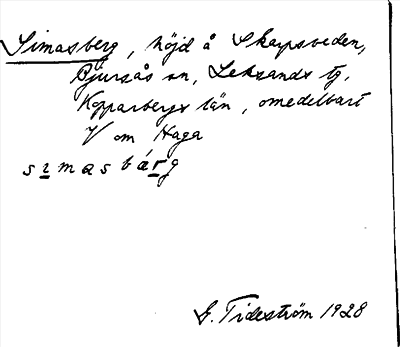 Simasberg, höjd å Skarpsveden,
Bjursås sn, Leksands tg,
Kopparbergs län, omedelbart
V om Haga
sɪmasbárg
G. Tideström 1928